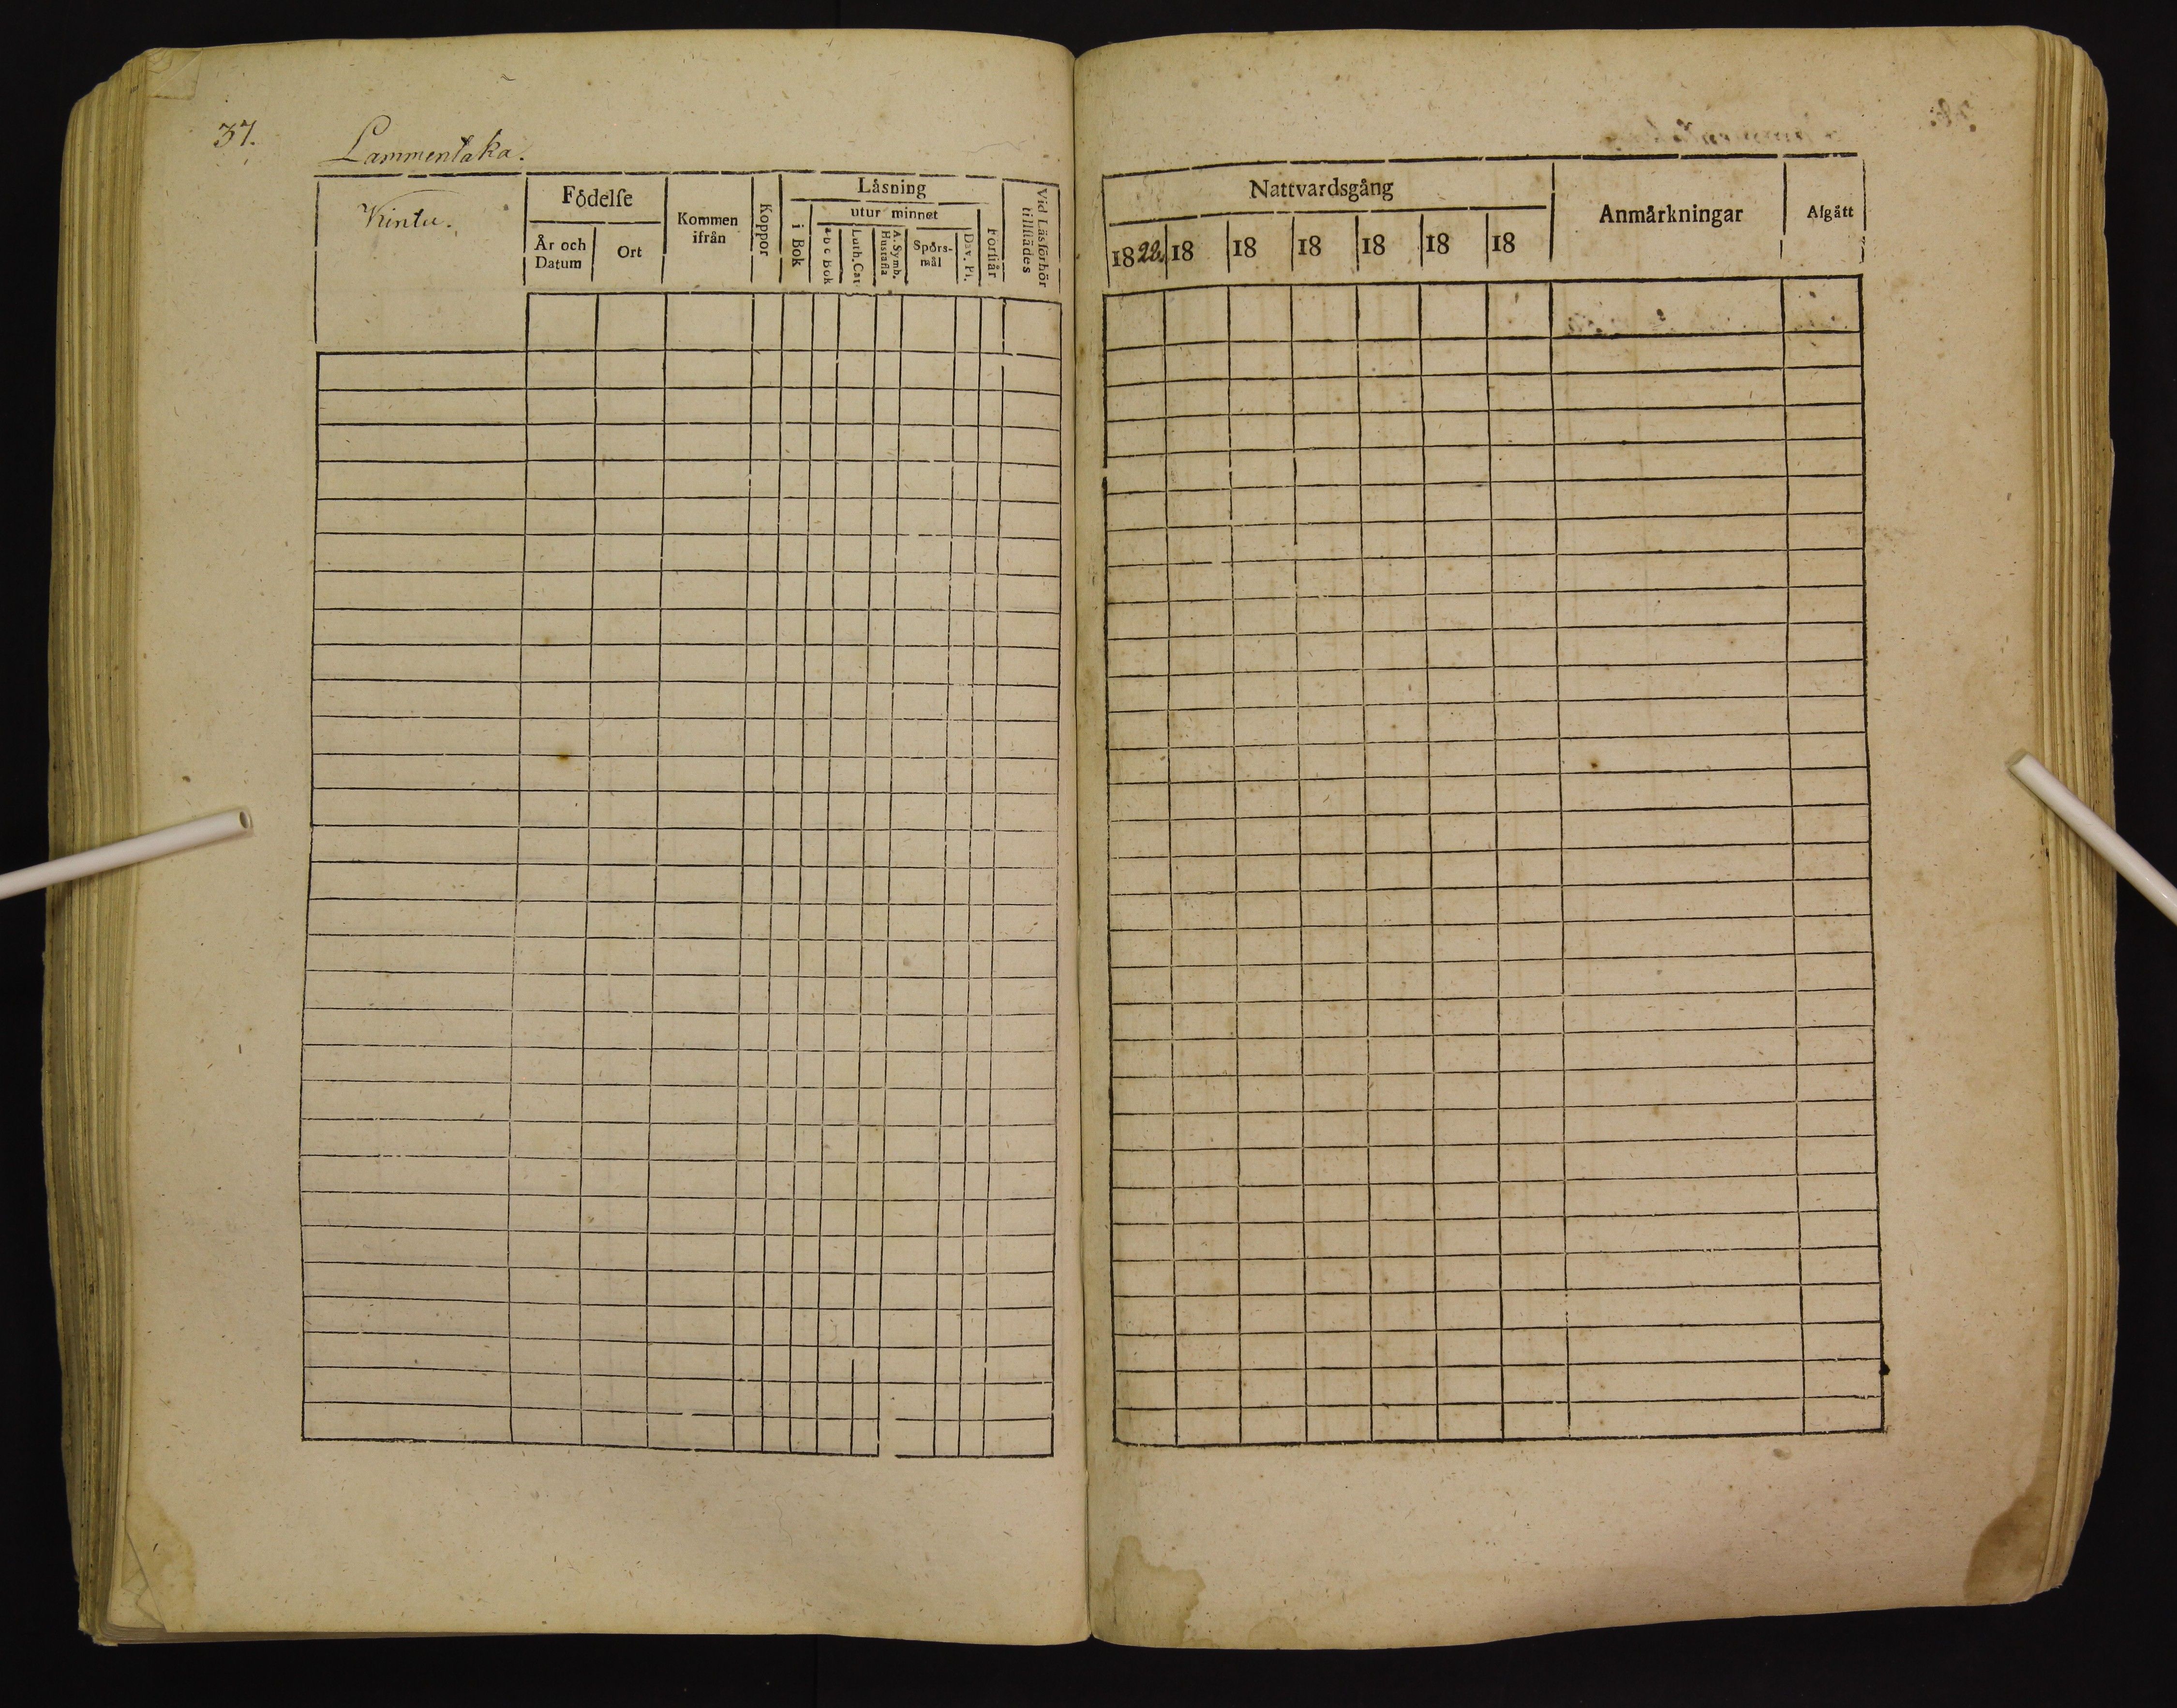 37.
Lammentaka.
Kintu.
Födelse
År och Datum
Ort
Kommen ifrån
Koppor
Låsning
i Bok
utur minnet
a b c Bok
Luth. Cat
A. Symb. Hustafla
Spörs-mål
Dav. Ps.
Förstår
Vid Läsförhör tillstädes
Nattvardsgång
1822.
18
18
18
18
18
18
Anmärkningar
Afgått